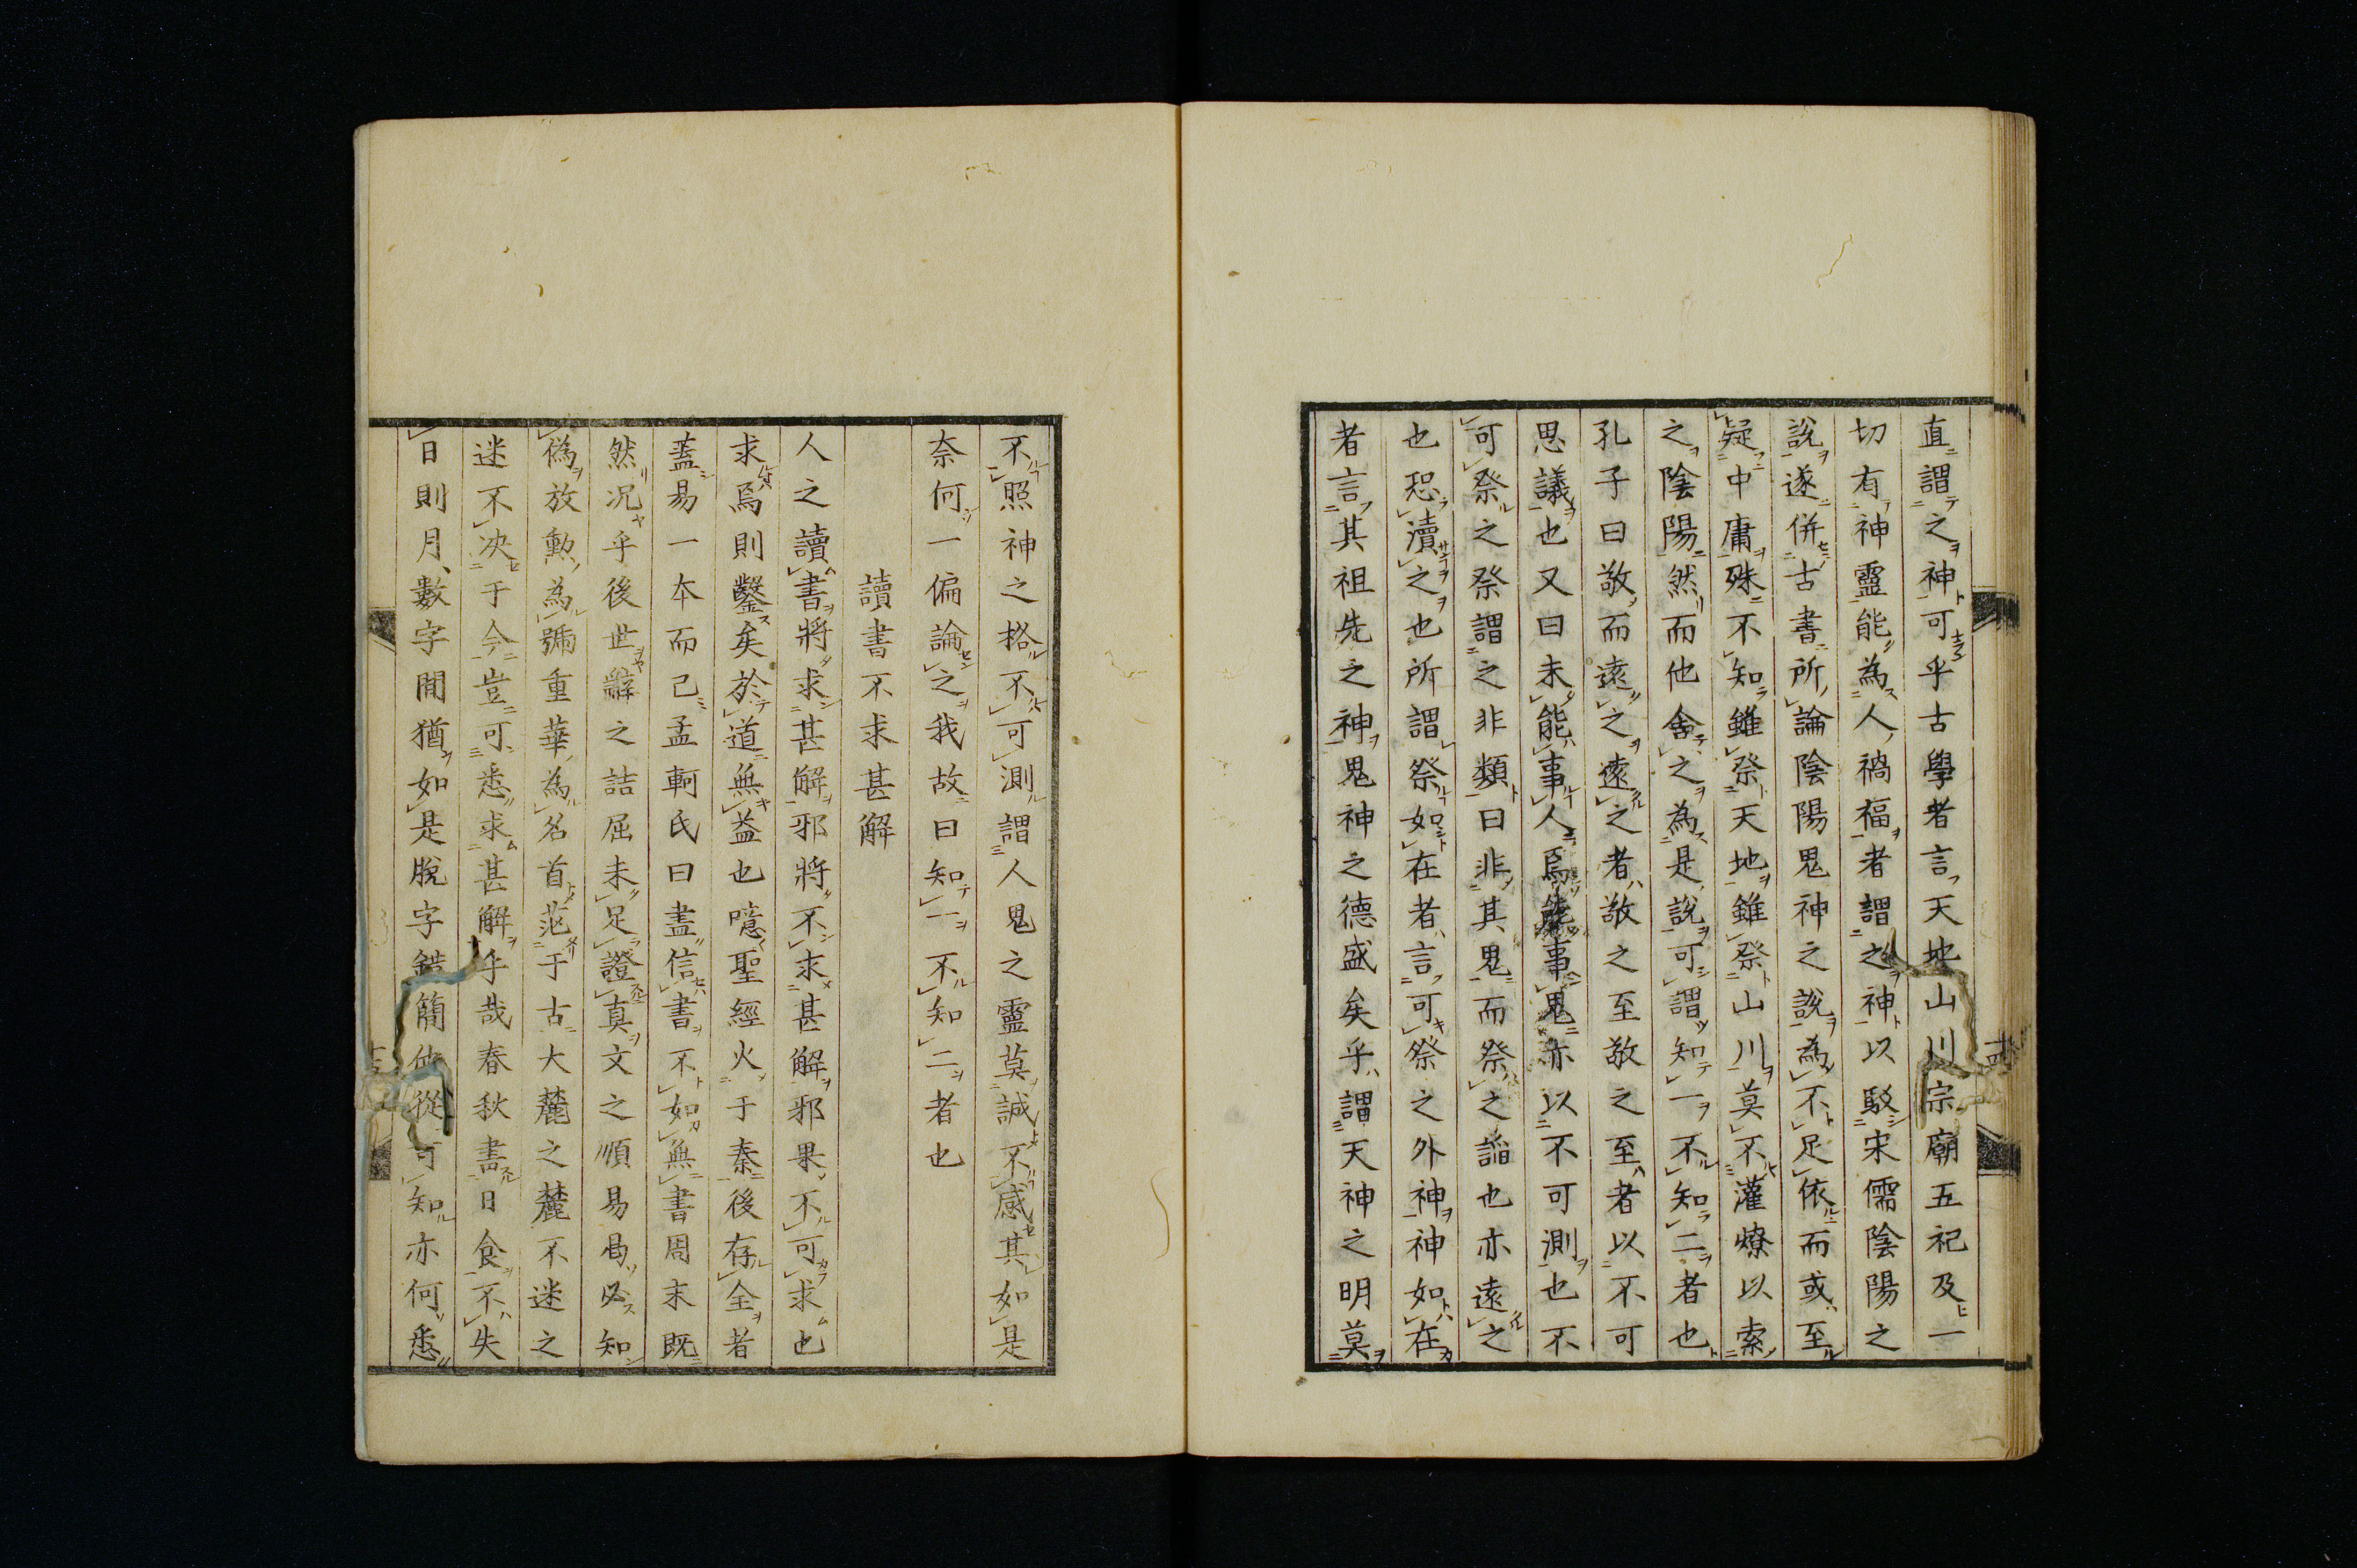 直謂之神可乎古學者言天地山川宗廟五祀及一
切有神靈能為人禍福者謂之神以駁宋儒陰陽之
說遂併古書所論陰陽鬼神之說為不足依而或至
疑中庸殊不知雖祭天地雖祭山川莫不灌燎以索
之陰陽然而他舍之為是說可謂知一不知二者也
孔子曰敬而遠之遠之者敬之至敬之至者以不可
思議也又曰未能事人焉能事鬼亦以不可測也不
可祭之祭謂之非類曰非其鬼而祭之謟也亦遠之
也恐瀆之也所謂祭如在者言可祭之外神神如在
者言其祖先之神鬼神之德盛矣乎謂天神之明莫
不照神之格不可測謂人鬼之靈莫誠不感其如是
奈何一偏論之我故曰知一不知二者也
讀書不求甚解
人之讀書將求甚解邪將不求甚解邪果不可求也
求焉則鑿矣於道無益也噫聖經火于秦後存全者
蓋易一本而已孟軻氏曰盡信書不如無書周末既
然況乎後世辭之詰屈未足證真文之順易曷必知
偽放勳為號重華為名首茫于古大麓之麓不迷之
迷不決于今豈可悉求甚解乎哉春秋書日食不失
日則月數字間猶如是脫字錯簡 從可知亦何悉